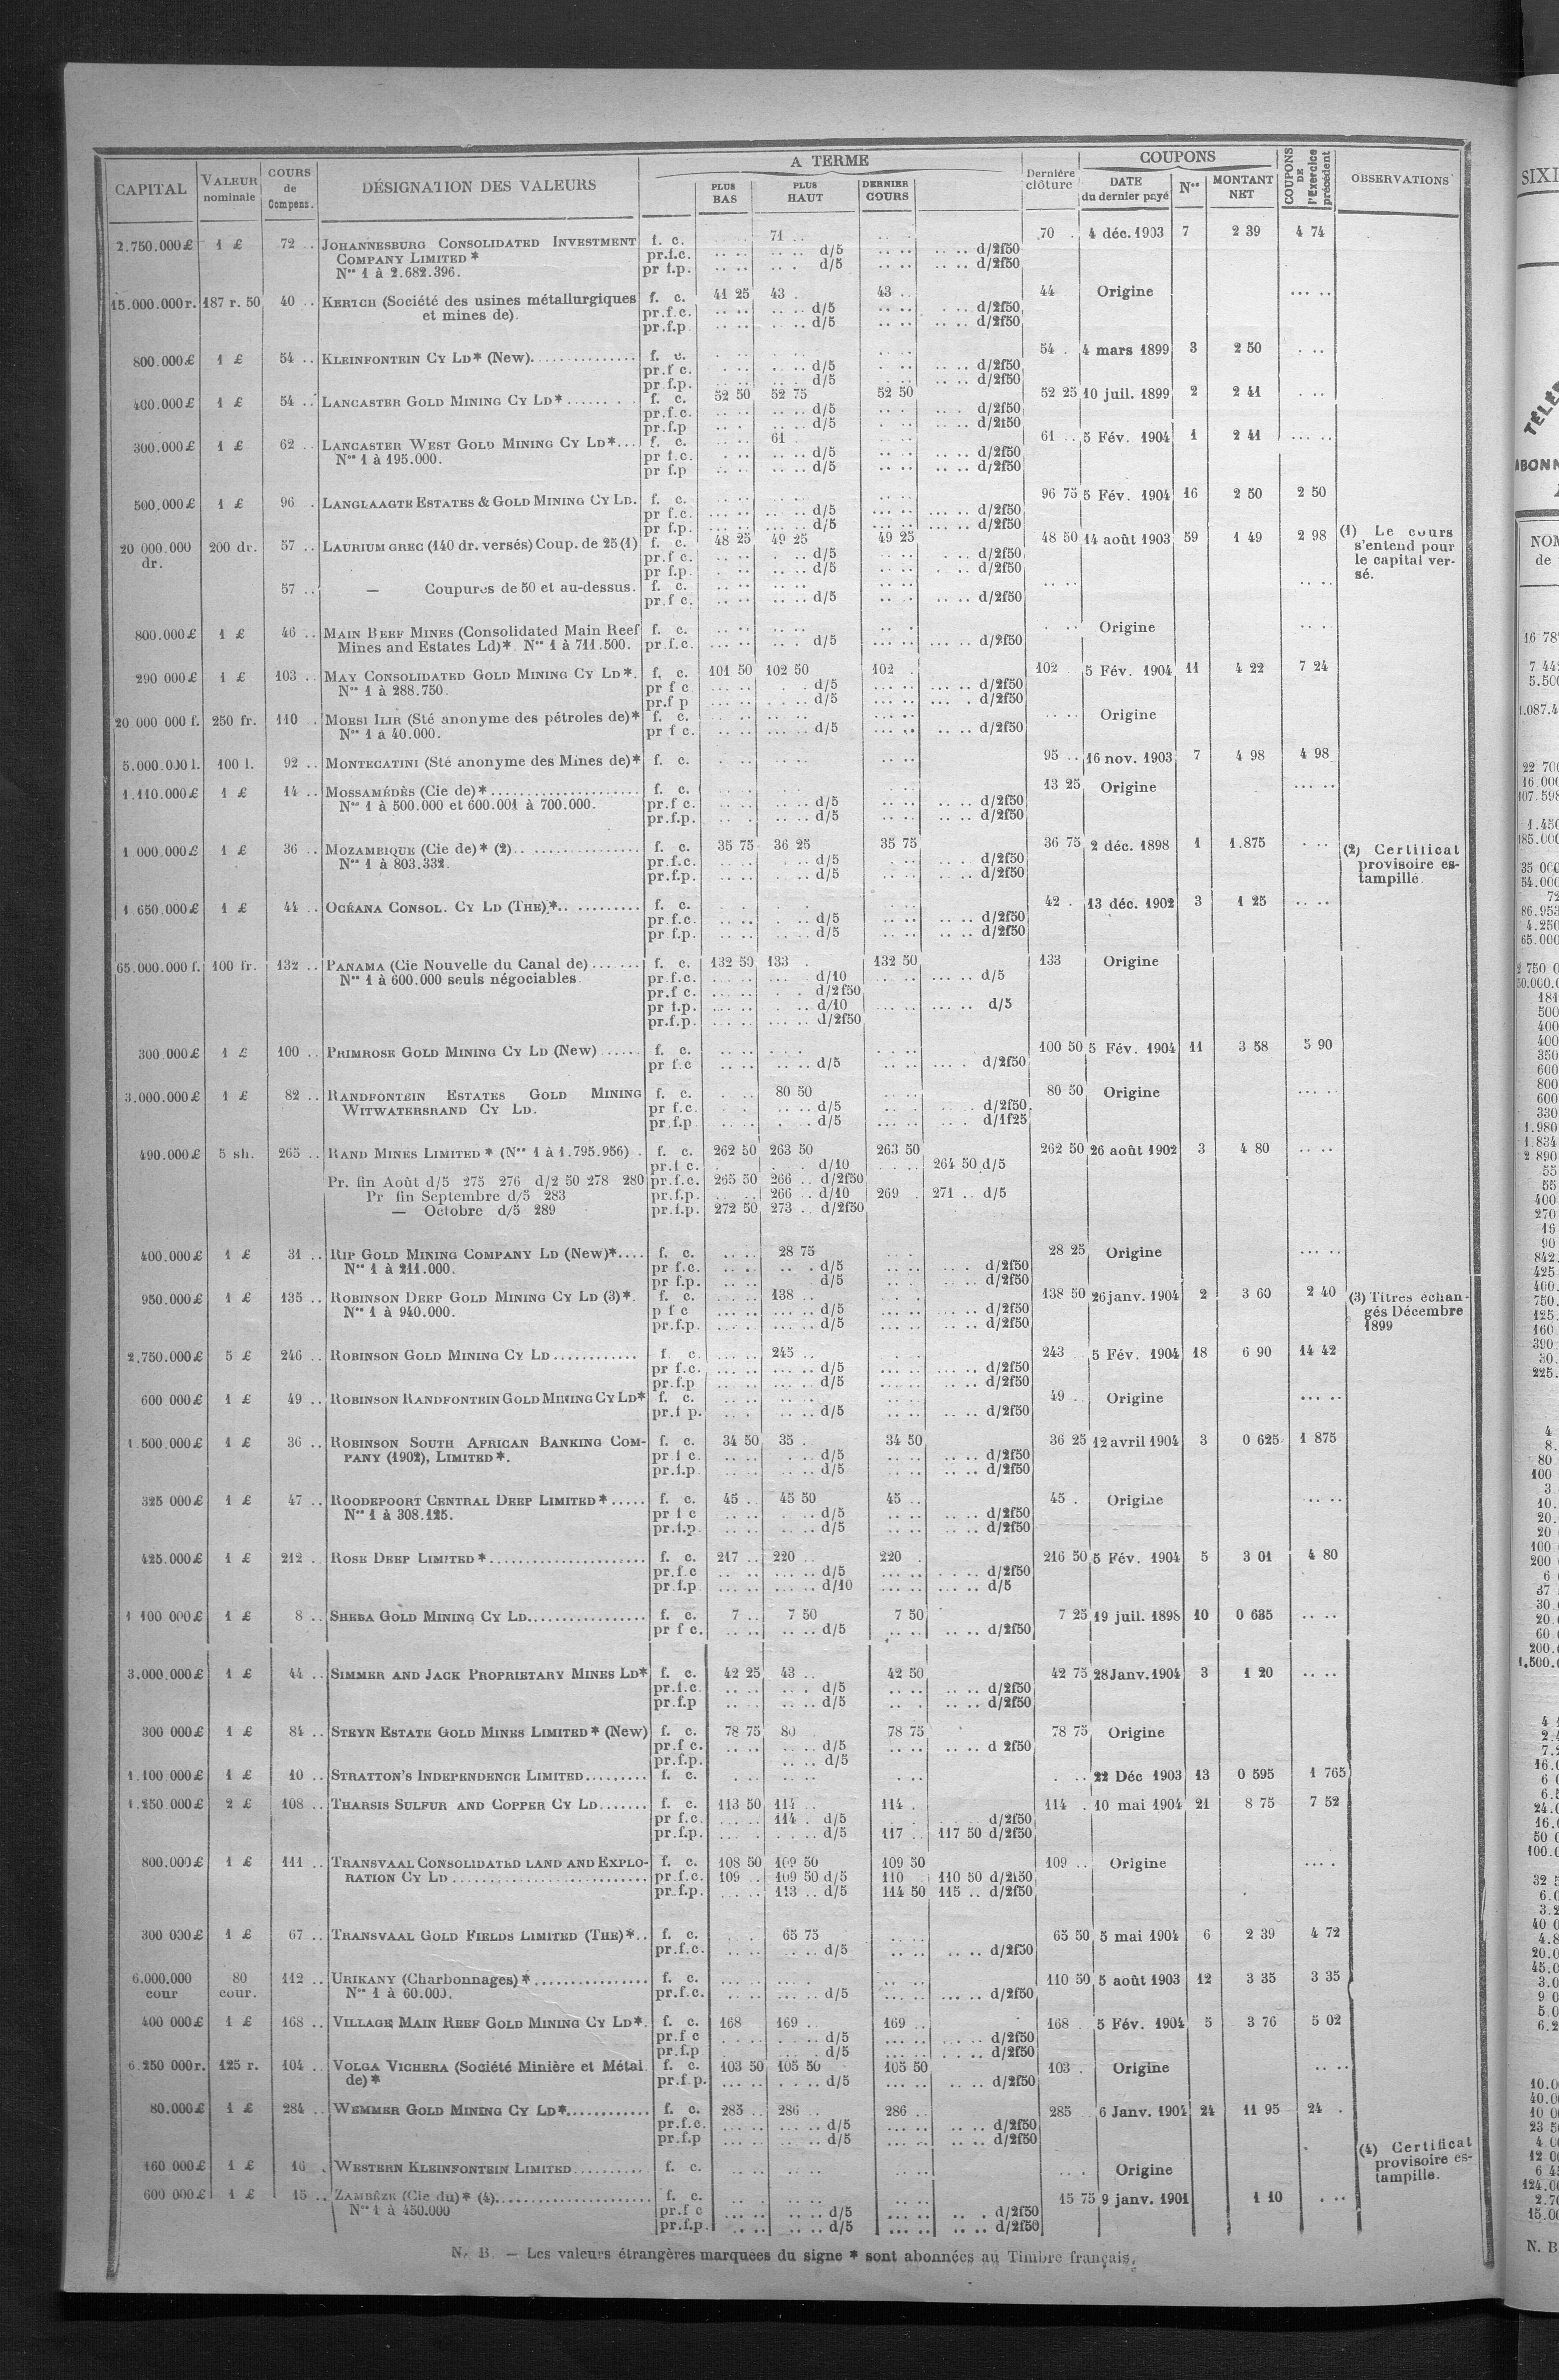 A TERME
COUPONS
CAPITAL VALEUR nominale COURS de Compens. DÉSIGNATION DES VALEURS PLUS BAS PLUS HAUT DERNIER COURS Dernière clôture DATE du dernier payé Nos MONTANT NET COUPONS DE l'Exercice précédent OBSERVATIONS
2.750.000£ 1 £ 72 .. JOHANNESBURG CONSOLIDATED INVESTMENT f. c. 71 .. 70 . 4 déc. 1903 7 2 39 4 74
COMPANY LIMITED * pr.f.c. d/5 d/2f50
Nos 1 à 2.682.396. pr f.p. d/5 d/2f50
15.000.000r. 187 r. 50 40 .. KERTCH (Société des usines métallurgiques f. c. 41 25 43 . 43 .. 44 Origine
et mines de). pr.f.c. d/5 d/2f50
pr.f.p. d/5 d/2f50
800.000£ 1 £ 54 .. KLEINFONTEIN CY LD* (New) f. c. 54 . 4 mars 1899 3 2 50
pr.f c. d/5 d/2f50
pr.f.p. d/5 d/2f50
400.000£ 1 £ 54 .. LANCASTER GOLD MINING CY LD* f. c. 52 50 52 75 52 50 52 25 10 juil. 1899 2 2 41
pr.f.c. d/5 d/2f50
pr.f.p d/5 d/2f50
300.000£ 1 £ 62 .. LANCASTER WEST GOLD MINING CY LD* f. c. 61 61 .. 5 Fév. 1904 1 2 41
Nos 1 à 195.000. pr f.c. d/5 d/2f50
pr f.p d/5 d/2f50
500.000£ 1 £ 96 . LANGLAAGTE ESTATES & GOLD MINING CY LD. f. c. 96 75 5 Fév. 1904 16 2 50 2 50
pr f.c. d/5 d/2f50
pr f.p. d/5 d/2f50
20 000.000 dr. 200 dr. 57 .. LAURIUM GREC (140 dr. versés) Coup. de 25 (1) f. c. 48 25 49 25 49 25 48 50 14 août 1903 59 1 49 2 98 (1) Le cours s'entend pour le capital versé.
pr.f c. d/5 d/2f50
pr f.p. d/5 d/2f50
57 .. — Coupures de 50 et au-dessus. f. c.
pr.f c. d/5 d/2f50
800.000£ 1 £ 46 .. MAIN REEF MINES (Consolidated Main Reef f. c. Origine
Mines and Estates Ld)*. Nos 1 à 711.500. pr.f.c. d/5 d/2f50
290 000£ 1 £ 103 .. MAY CONSOLIDATED GOLD MINING CY LD*. f. c. 101 50 102 50 102 . 102 5 Fév. 1904 11 4 22 7 24
Nos 1 à 288.750. pr f c d/5 d/2f50
pr.f p d/5 d/2f50
20 000 000 f. 250 fr. 110 . MORSI ILIR (Sté anonyme des pétroles de)* f. c. Origine
Nos 1 à 40.000. pr f c. d/5 d/2f50
5.000.000 l. 100 l. 92 .. MONTECATINI (Sté anonyme des Mines de)* f. c. 95 .. 16 nov. 1903 7 4 98 4 98
1.110.000£ 1 £ 14 .. MOSSAMÉDÈS (Cie de)* f. c. 13 25 Origine
Nos 1 à 500.000 et 600.001 à 700.000. pr.f c. d/5 d/2f50
pr.f.p. d/5 d/2f50
1 000.000£ 1 £ 36 .. MOZAMBIQUE (Cie de)* (2) f. c. 35 75 36 25 35 75 36 75 2 déc. 1898 1 1.875 (2) Certificat provisoire estampillé.
Nos 1 à 803.332. pr.f.c. d/5 d/2f50
pr.f.p. d/5 d/2f50
1 650.000£ 1 £ 44 .. OCÉANA CONSOL. CY LD (THE)* f. c. 42 . 13 déc. 1902 3 1 25
pr.f.c. d/5 d/2f50
pr f.p. d/5 d/2f50
65.000.000 f. 100 fr. 132 .. PANAMA (Cie Nouvelle du Canal de) f. c. 132 50 133 . 132 50 133 Origine
Nos 1 à 600.000 seuls négociables. pr.f.c. d/10 d/5
pr.f c. d/2f50
pr f.p. d/10 d/5
pr.f.p. d/2f50
300.000£ 1 £ 100 .. PRIMROSE GOLD MINING CY LD (New) f. c. 100 50 5 Fév. 1904 11 3 58 5 90
pr f.c d/5 d/2f50
3.000.000£ 1 £ 82 .. RANDFONTEIN ESTATES GOLD MINING f. c. 80 50 80 50 Origine
WITWATERSRAND CY LD. pr f.c. d/5 d/2f50
pr f.p d/5 d/1f25
490.000£ 5 sh. 265 .. RAND MINES LIMITED * (Nos 1 à 1.795.956) f. c. 262 50 263 50 263 50 262 50 26 août 1902 3 4 80
pr.f c. d/10 264 50 d/5
Pr. fin Août d/5 275 276 d/2 50 278 280 pr.f.c. 265 50 266 .. d/2f50
Pr fin Septembre d/5 283 pr.f.p. 266 .. d/10 269 . 271 .. d/5
— Octobre d/5 289 pr.f.p. 272 50 273 .. d/2f50
400.000£ 1 £ 31 .. RIP GOLD MINING COMPANY LD (New)* f. c. 28 75 28 25 Origine
Nos 1 à 211.000. pr f.c. d/5 d/2f50
pr f.p. d/5 d/2f50
950.000£ 1 £ 135 .. ROBINSON DEEP GOLD MINING CY LD (3)*. f. c. 138 .. 138 50 26 janv. 1904 2 3 60 2 40 (3) Titres échangés Décembre 1899
Nos 1 à 940.000. p f c d/5 d/2f50
pr.f.p. d/5 d/2f50
2.750.000£ 5 £ 246 .. ROBINSON GOLD MINING CY LD f. c 245 .. 243 5 Fév. 1904 18 6 90 14 42
pr f.c. d/5 d/2f50
pr.f.p d/5 d/2f50
600 000£ 1 £ 49 .. ROBINSON RANDFONTEIN GOLD MINING CY LD* f. c. 49 .. Origine
pr.f p. d/5 d/2f50
1.500.000£ 1 £ 36 .. ROBINSON SOUTH AFRICAN BANKING COM- f. c. 34 50 35 . 34 50 36 25 12 avril 1904 3 0 625 1 875
PANY (1902), LIMITED *. pr f c. d/5 d/2f50
pr.f.p. d/5 d/2f50
325 000£ 1 £ 47 .. ROODEPOORT CENTRAL DEEP LIMITED * f. c. 45 .. 45 50 45 .. 45 . Origine
Nos 1 à 308.125. pr f c d/5 d/2f50
pr.f.p. d/5 d/2f50
425.000£ 1 £ 212 .. ROSE DEEP LIMITED * f. c. 217 .. 220 .. 220 . 216 50 5 Fév. 1904 5 3 01 4 80
pr.f.c d/5 d/2f50
pr.f.p d/10 d/5
1 100 000£ 1 £ 8 .. SHEBA GOLD MINING CY LD f. c. 7 .. 7 50 7 50 7 25 19 juil. 1898 10 0 635
pr f c. d/5 d/2f50
3.000.000£ 1 £ 44 .. SIMMER AND JACK PROPRIETARY MINES LD* f. c. 42 25 43 .. 42 50 42 75 28 Janv. 1904 3 1 20
pr.f.c. d/5 d/2f50
pr.f.p d/5 d/2f50
300 000£ 1 £ 84 .. STEYN ESTATE GOLD MINES LIMITED * (New) f. c. 78 75 80 . 78 75 78 75 Origine
pr.f c. d/5 d 2f50
pr.f.p. d/5
1.100 000£ 1 £ 10 .. STRATTON'S INDEPENDENCE LIMITED f. c. 22 Déc 1903 13 0 595 1 765
1.250.000£ 2 £ 108 .. THARSIS SULFUR AND COPPER CY LD f. c. 113 50 114 .. 114 . 114 . 10 mai 1904 21 8 75 7 52
pr f.c. 114 . d/5 d/2f50
pr.f.p. d/5 117 .. 117 50 d/2f50
800.000£ 1 £ 111 .. TRANSVAAL CONSOLIDATED LAND AND EXPLO- f. c. 108 50 109 50 109 50 109 .. Origine
RATION CY LD pr.f.c. 109 .. 109 50 d/5 110 110 50 d/2f50
pr.f.p. 113 .. d/5 114 50 115 .. d/2f50
300 000£ 1 £ 67 .. TRANSVAAL GOLD FIELDS LIMITED (THE)* f. c. 65 75 65 50 5 mai 1904 6 2 39 4 72
pr.f.c. d/5 d/2f50
6.000.000 cour 80 cour. 112 .. URIKANY (Charbonnages) * f. c. 110 50 5 août 1903 12 3 35 3 35
Nos 1 à 60.000. pr.f.c. d/5 d/2f50
400 000£ 1 £ 168 .. VILLAGE MAIN REEF GOLD MINING CY LD*. f. c. 168 169 .. 169 .. 168 . 5 Fév. 1904 5 3 76 5 02
pr.f c d/5 d/2f50
pr.f.p d/5 d/2f50
6.250 000r. 125 r. 104 .. VOLGA VICHERA (Société Minière et Métal. f. c. 103 50 105 50 105 50 103 . Origine
de) * pr.f.p. d/5 d/2f50
80.000£ 1 £ 284 .. WEMMER GOLD MINING CY LD* f. c. 283 .. 286 .. 286 .. 285 6 Janv. 1904 24 11 95 24 .
pr.f.c. d/5 d/2f50
pr.f.p d/5 d/2f50
160 000£ 1 £ 16 . WESTERN KLEINFONTEIN LIMITED f. c. Origine (4) Certificat provisoire estampille.
600 000£ 1 £ 15 .. ZAMBÈZE (Cie du)* (4) f. c. 15 75 9 janv. 1901 1 10
Nos 1 à 450.000 pr.f c d/5 d/2f50
pr.f.p. d/5 d/2f50
N. B. — Les valeurs étrangères marquées du signe * sont abonnées au Timbre français.